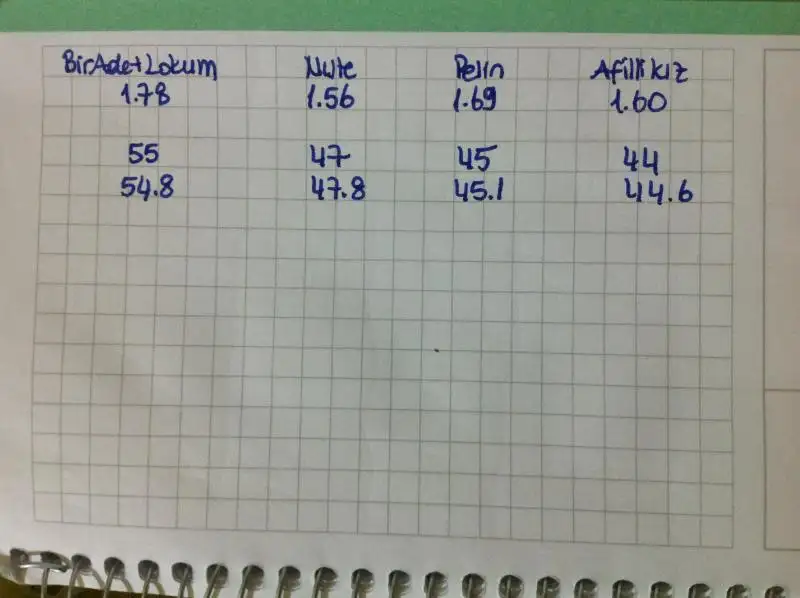 BirAdetLokum Nute Pelin Afilli kız
1.78 1.56 1.69 1.60
55 47 45 44
54.8 47.8 45.1 44.6